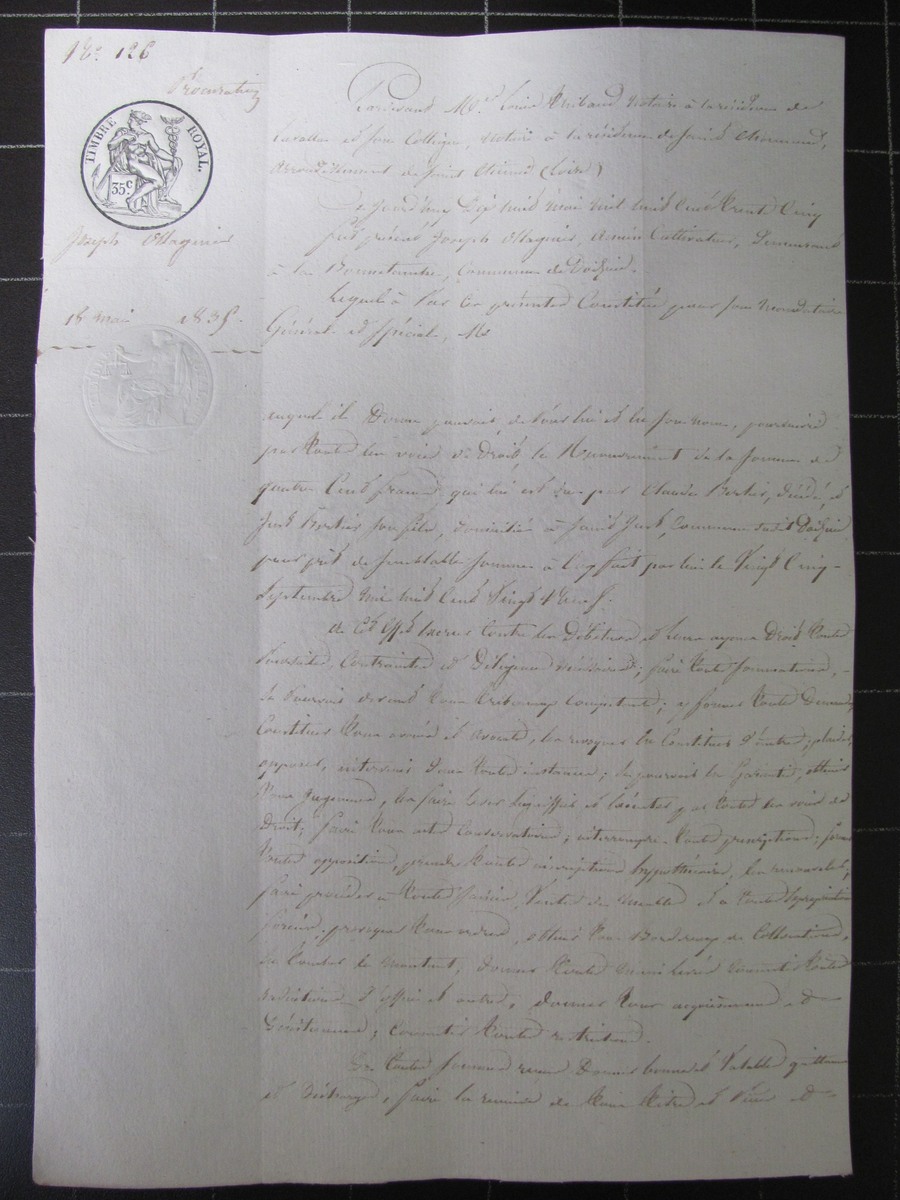 Nº 126
Procuration
TIMBRE ROYAL.
35 c.
Joseph Ottagnier
18 mai 1835.
Pardevant Me Louis Thibaud Notaire à la résidence de
et son Collègue, Notaire à la résidence de Saint Chamond,
Arrondissement de Saint Etienne (Loire)
Ce jourd'hui Dix huit mai mil huit cent trente Cinq
fut présent Joseph Ottagnier, Cultivateur, Demeurant
à la Commune de Doizieu.
Lequel a Par ces présentes Constitué pour son Mandataire
Général et Spécial, Me
auquel il Donne pouvoir, de Pour lui et en son nom, poursuivre
par toutes les voies de Droit, le Recouvrement de la somme de
quatre Cent francs, qui lui est due par Claude décédé, et
Just son fils, domiciliés à Saint Just, Commune de Doizieu
pour prêt de semblable somme à eux fait par lui le Vingt Cinq
Septembre mil huit Cent Vingt Neuf.
A Cet Effet Exercer Contre les Débiteurs et leurs ayans Droit toutes
Poursuites, Contraintes et Diligences nécessaires; faire toutes sommations,
Se Pourvoir devant tous tribunaux Compétents; y former toutes Demandes
Constituer tous avoués et avocats, les révoquer en Constituer d'autres; plaider,
opposer, intervenir Dans toutes instances; obtenir
Tous jugements, les faire lever signifier et Exécuter par toutes les voies de
Droit; faire tous actes conservatoires; interrompre toutes prescriptions; former
toutes oppositions, prendre toutes inscriptions hypothécaires, les renouveler,
faire procéder à toutes saisies, Ventes de meubles et à toutes Expropriations
forcées, provoquer tous ordres, obtenir tous Bordereaux de Collocations,
En toucher le montant, donner toutes main levées consentir toutes
radiations d'office et autres, donner tous acquiescements et
Désistements; Consentir toutes restrictions.
De toutes sommes reçues Donner bonnes et Valables quittances
et Décharges, faire la remise de tous titres et Pièces et